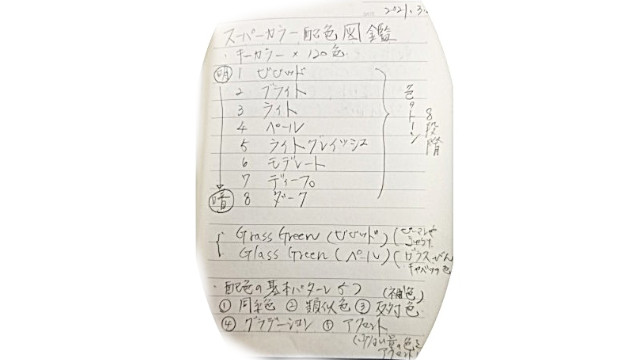 2021.3.
スーパーカラー配色図鑑
・キーカラー × 120色
明 1 ビビッド
2 ブライト
3 ライト
4 ペール
5 ライトグレイッシュ
6 モデレート
7 ディープ
暗 8 ダーク
色のトーン
8段階
Grass Green (ビビッド)
Glass Green (ペール) (ガラスびん
キャベツの色
・配色の基本パターン5つ
(補色)
① 同系色 ② 類似色 ③ 反対色
④ グラデーション ⑤ アクセント